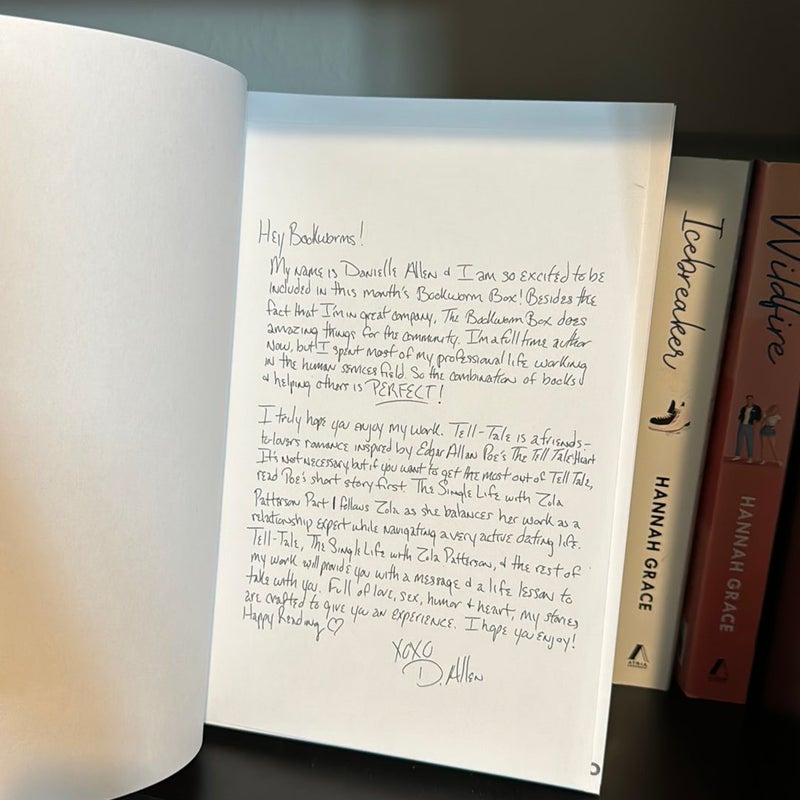 Hey Bookworms!
My name is Danielle Allen & I am so excited to be
included in this month's Bookworm Box! Besides the
fact that I'm in great company, The Bookworm Box does
amazing things for the community. I'm a full time author
now, but I spent most of my professional life working
in the human services field. So the combination of books
& helping others is PERFECT!
I truly hope you enjoy my work. Tell-Tale is a friends-
to-lovers romance inspired by Edgar Allan Poe's The Tell Tale Heart
It's not necessary but if you want to get the most out of Tell Tale,
read Poe's short story first. The Single Life with Zola
Patterson Part 1 follows Zola as she balances her work as a
relationship expert while navigating a very active dating life.
Tell-Tale, The Single Life with Zola Patterson, & the rest of
my work will provide you with a message & a life lesson to
take with you. Full of love, sex, humor & heart, my stories
are crafted to give you an experience. I hope you enjoy!
Happy Reading ♡
XOXO
D. Allen
Icebreaker
HANNAH GRACE
ATRIA
Wildfire
HANNAH GRACE